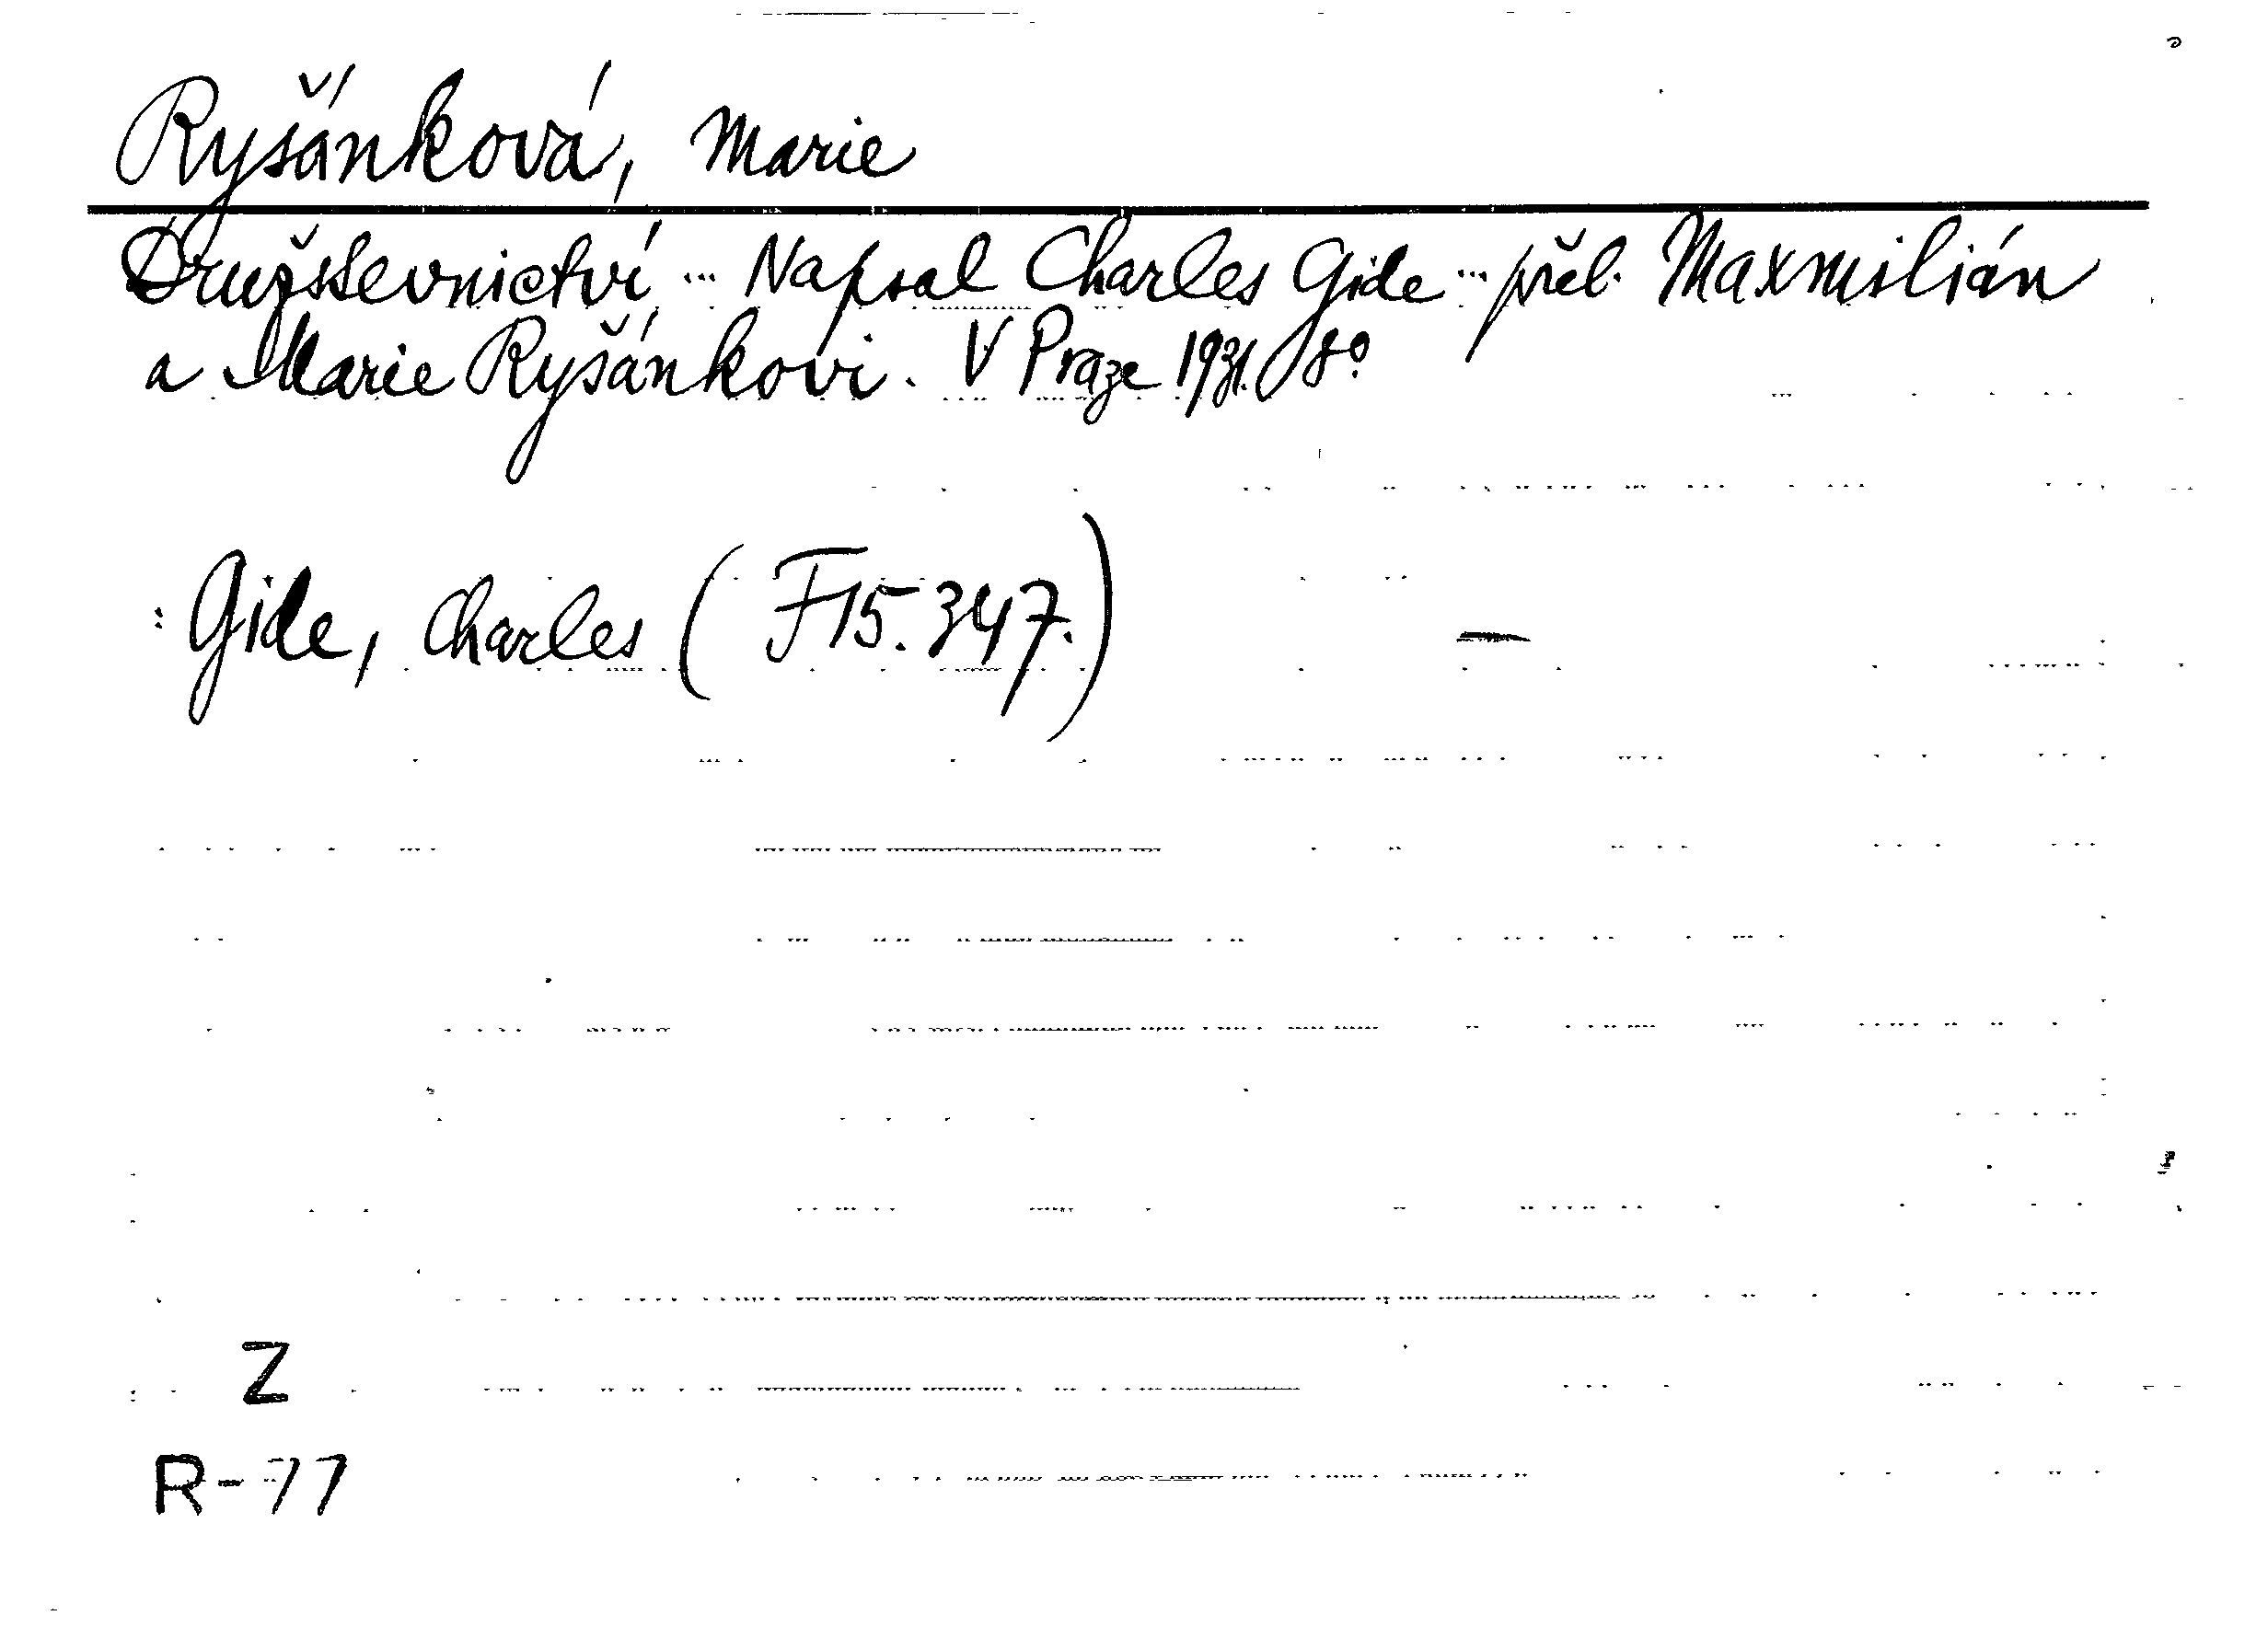 Ryšánková, Marie
Družstevnictví ... Napsal Charles Gide ... přel. Maxmilián
a Marie Ryšánkovi. V Praze 1931. 8°
: Gide, Charles ( F 15.347.)
Z
R-77